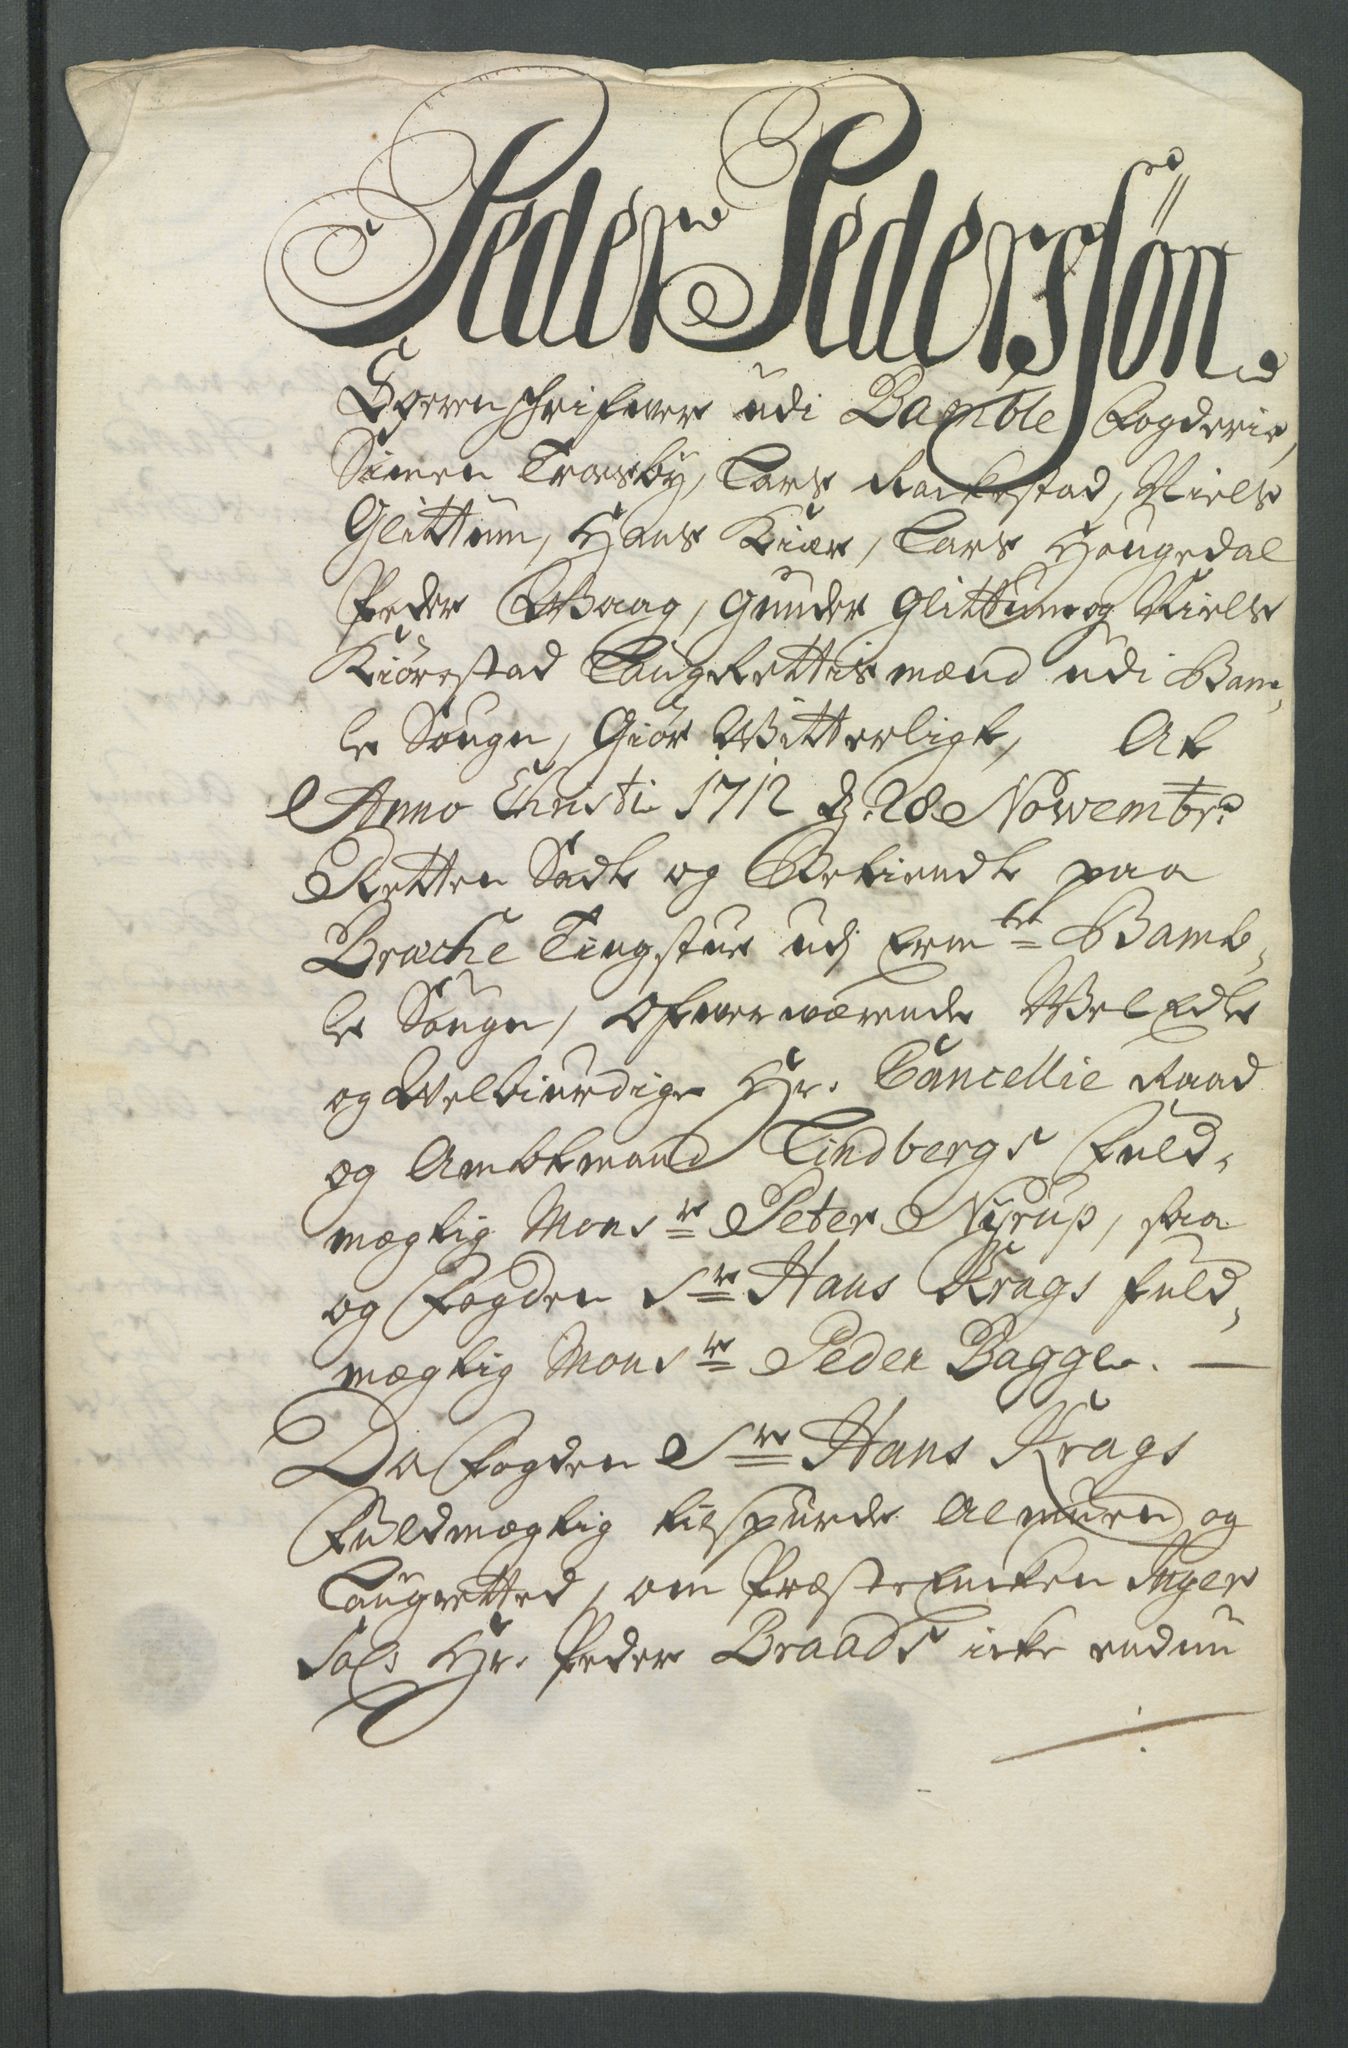 Peder Pederssøn
Sorenschrifwer udi Bamble Fogderie,
Simen Trosby, Lars Rackestad, Niels
Glittum, Hans Kiær, Lars Hougedal
Peder Waag, Gunder Glittum og Niels
Kiørestad LaugRettismænd udi Bam,,
le Sougn, Giør Witterligt, At
Anno Christi 1712 d. 28 Novembr:
Retten Sadt og Betiendt paa
Trache Tingstue udj Erm:te Bamb,,
le Sougn, Ofwerwærende WelEdle
og Welbiurdige Hr. Cancellie Raad
og Ambtmand Lindbergs Fuld,,
mægtig Mons:r Peter Nyrup, saa
og Fogden S:r Hans Krags fuld,,
mægtig Mons:r Peder Bagge.
Da Fogden S:r Hans Krags
Fuldmægtig tilspurde Almuen og
Laugretted, om PræsteEncken Inger
Sal: Hr. Peder Braads icke endnu